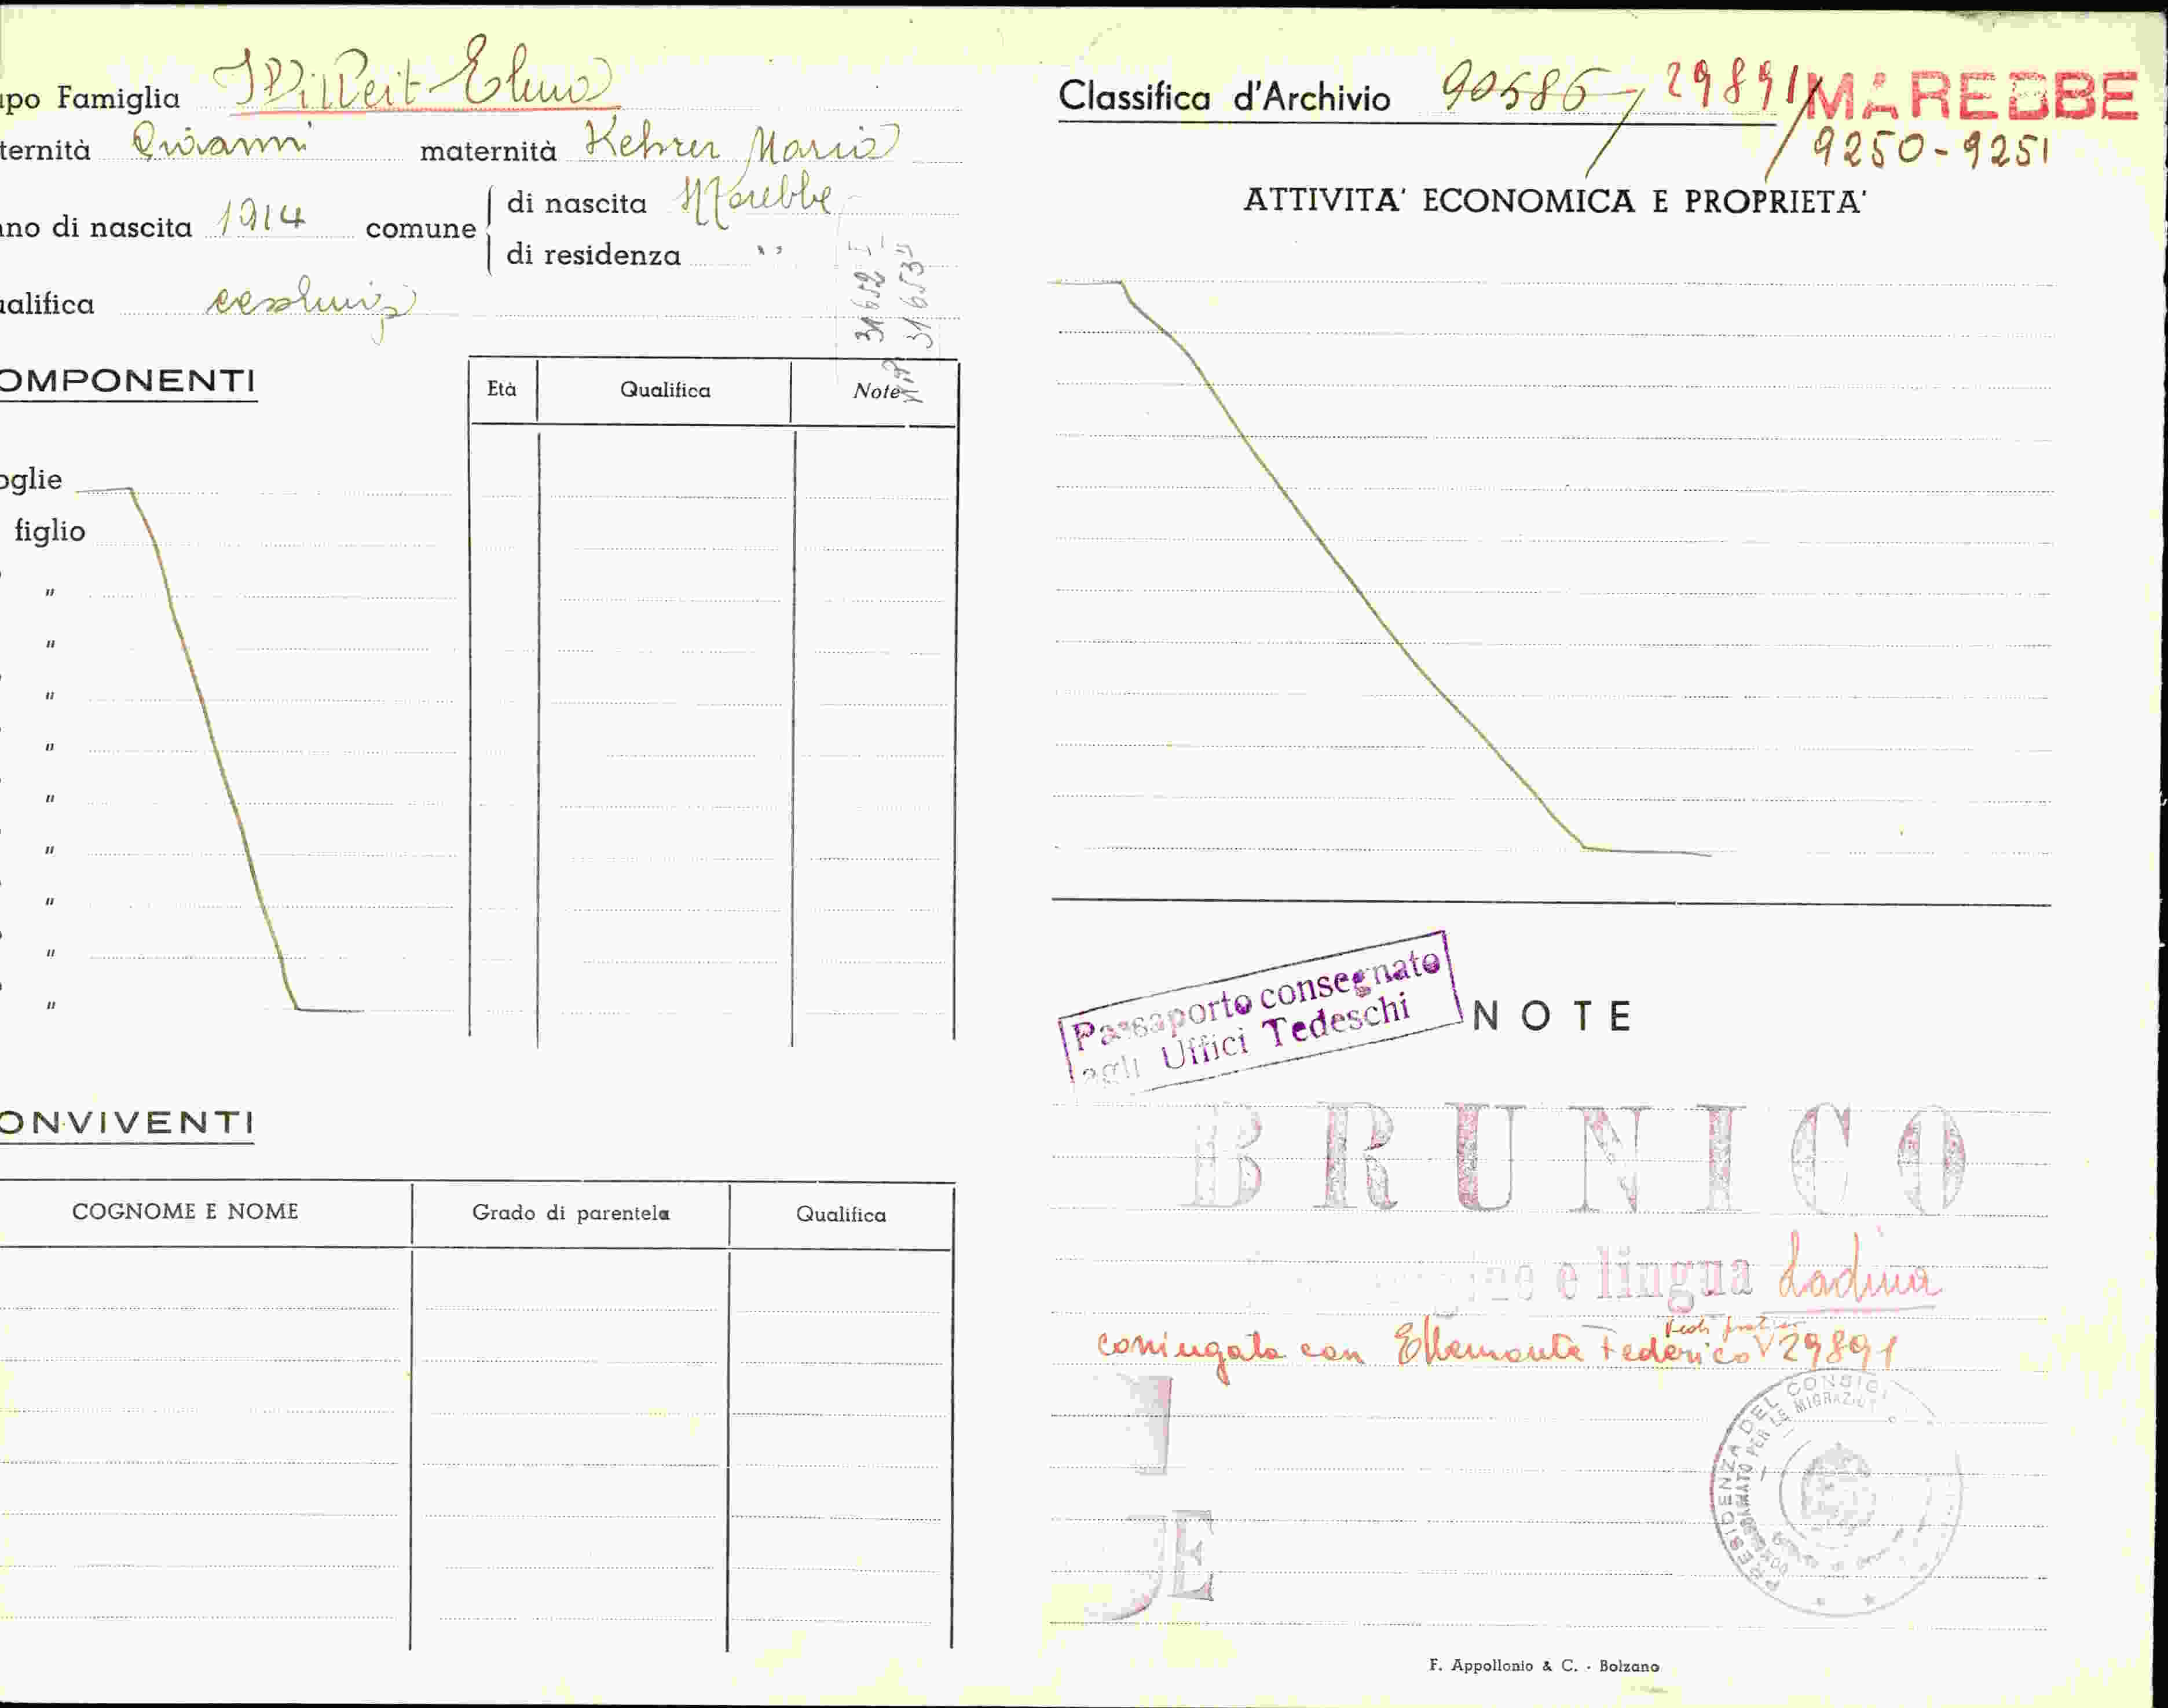 apo Famiglia Willeit Elena
ternità Giovanni maternità Kehrer Maria
nno di nascita 1914 comune di nascita Marebbe
di residenza " "
ualifica casaling
31652 I
31653 II
OMPONENTI
Età Qualifica Note
oglie
figlio
"
"
"
"
"
"
"
"
"
ONVIVENTI
COGNOME E NOME Grado di parentela Qualifica
Classifica d'Archivio 90586 / 29891 / MAREBBE
9250-9251
ATTIVITA' ECONOMICA E PROPRIETA'
Passaporto consegnato
agli Uffici Tedeschi
NOTE
BRUNICO
e lingua Ladina
coniugata con Ellemunta Federico V 29891
PRESIDENZA DEL CONSIGI
PER LE MIGRAZIO
F. Appollonio & C. - Bolzano